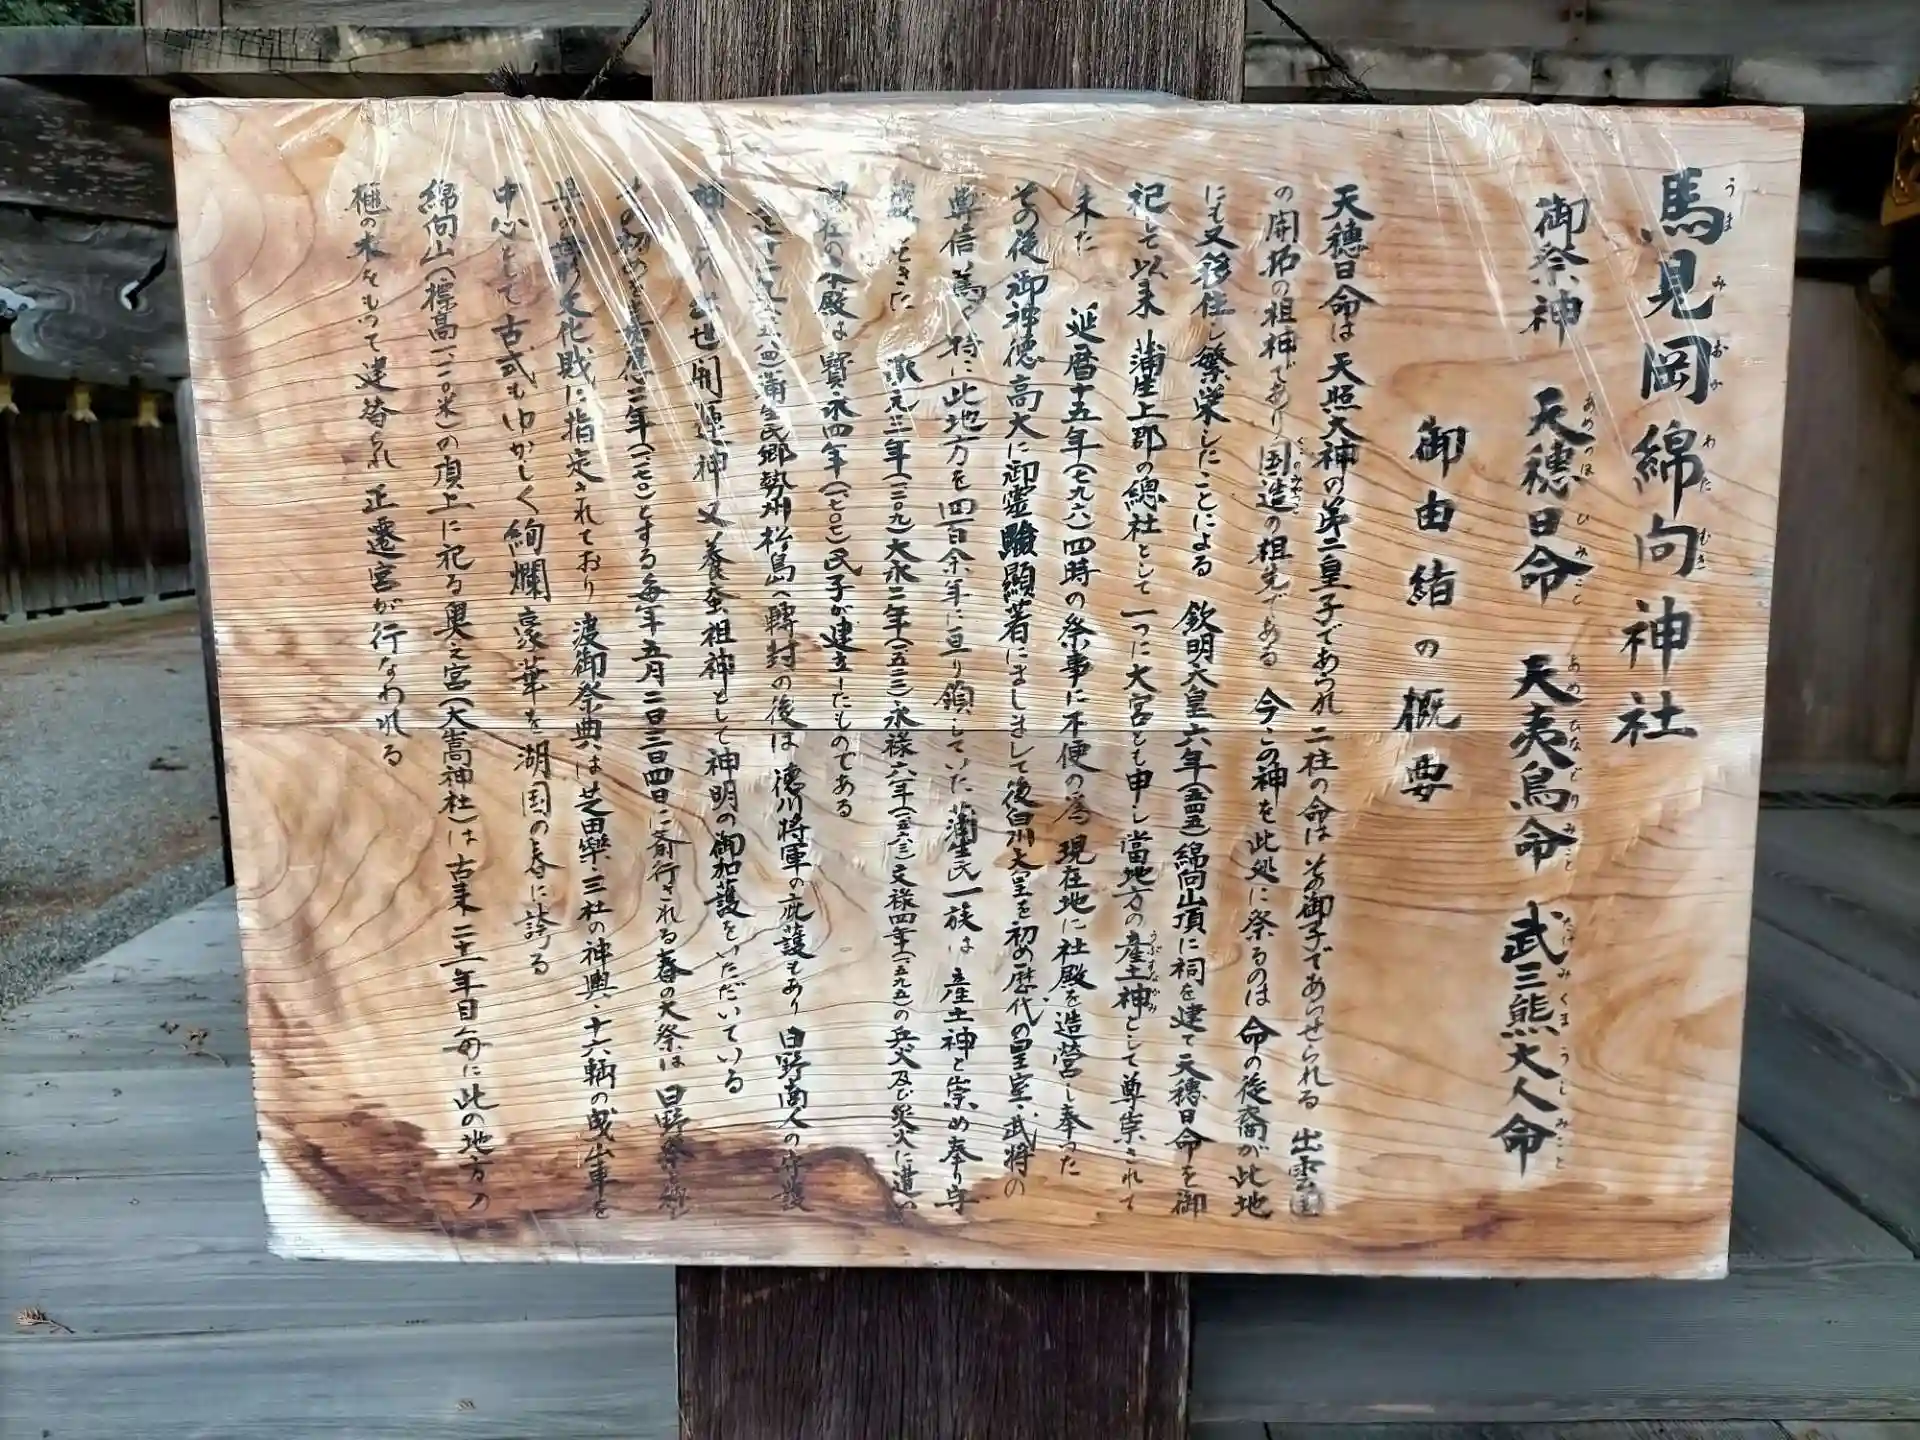 馬見岡綿向神社
御祭神 天穂日命 天夷鳥命 武三熊大人命
御由緒の概要
天穂日命は天照大神の第二皇子であられ 二柱の命はその御子であらせられる 出雲国
の開拓の祖神であり 国造の祖先である 今この神を此処に祭るのは 命の後裔が此地
にも又移住し繁栄したことによる 欽明天皇六年(五四五)綿向山頂に祠を建て天穂日命を御
祀して以来 蒲生上郡の總社として 一つに大宮とも申し當地方の産土神として尊崇されて
来た 延暦十五年(七九六)四時の祭事に不便の為 現在地に社殿を造營し奉った
その後御神徳高大に御霊驗顯著にましまして後白川天皇を初め歴代の皇室、武将の
尊信篤く特に此地方を四百余年に亘り領していた 蒲生氏一族は 産土神と崇め奉り守
護してきた 承元三年(一二〇九)大永二年(一五二二)永禄六年(一五六三)文禄四年(一五九五)の兵火及び災火に遭い
現在の本殿は寳永四年(一七〇七)氏子が建立したものである
蒲生氏郷勢州松島へ轉封の後は 徳川将軍の庇護もあり 日野商人の守護
出世開運神 又養蚕祖神として神明の御加護をいただいている
とする毎年五月二日三日四日に斎行される春の大祭は 日野祭と稱し
県の無形文化財に指定されており 渡御祭典は芝田樂、三社の神輿、十六輌の曳山車を
中心として古式もゆかしく絢爛豪華を湖国の春に誇る
綿向山(標高一、一一〇米)の頂上に祀る奥之宮(大嵩神社)は古来二十一年目毎に此の地方の
樋の木をもって建替られ 正遷宮が行なわれる
うま
み
おか
わた
むき
あめのほ
ひ
みこと
あめ
ひなどり
みこと
たけ
みくま
うし
みこと
くにのみやつこ
うぶすながみ